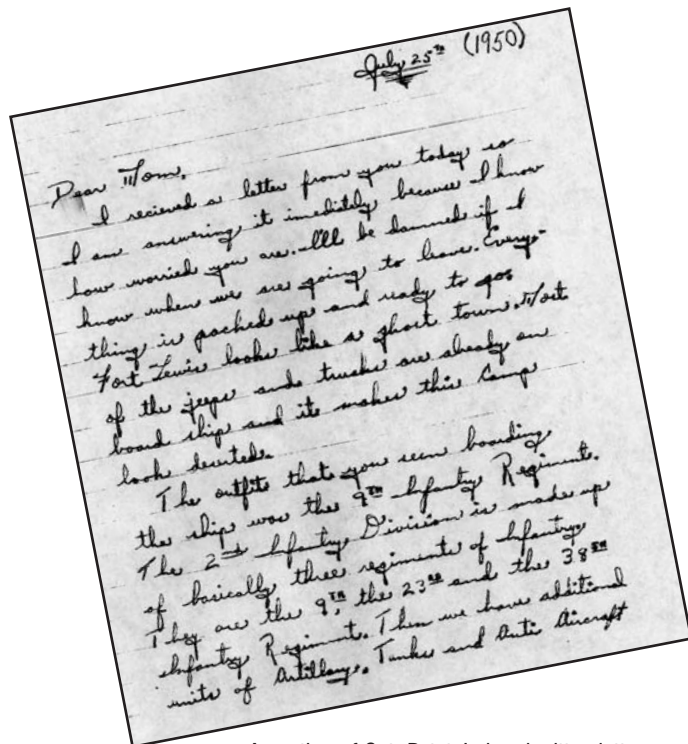 July 25th (1950)
Dear Mom,
I recieved a letter from you today so
I am answering it imediitely because I know
how worried you are. I'll be damned if I
know when we are going to leave. Every-
thing is packed up and ready to go.
Fort Lewis looks like a ghost town. Most
of the jeeps and trucks are already on
board ship and it makes this Camp
look deserted.
The outfit that you seen boarding
the ship was the 9TH Infantry Regiment.
The 2nd Infantry Division is made up
of basically three regiments of Infantry.
They are the 9TH, the 23RD and the 38TH
Infantry Regiment. Then we have additional
units of Artillary. Tanks and Anti Aircraft